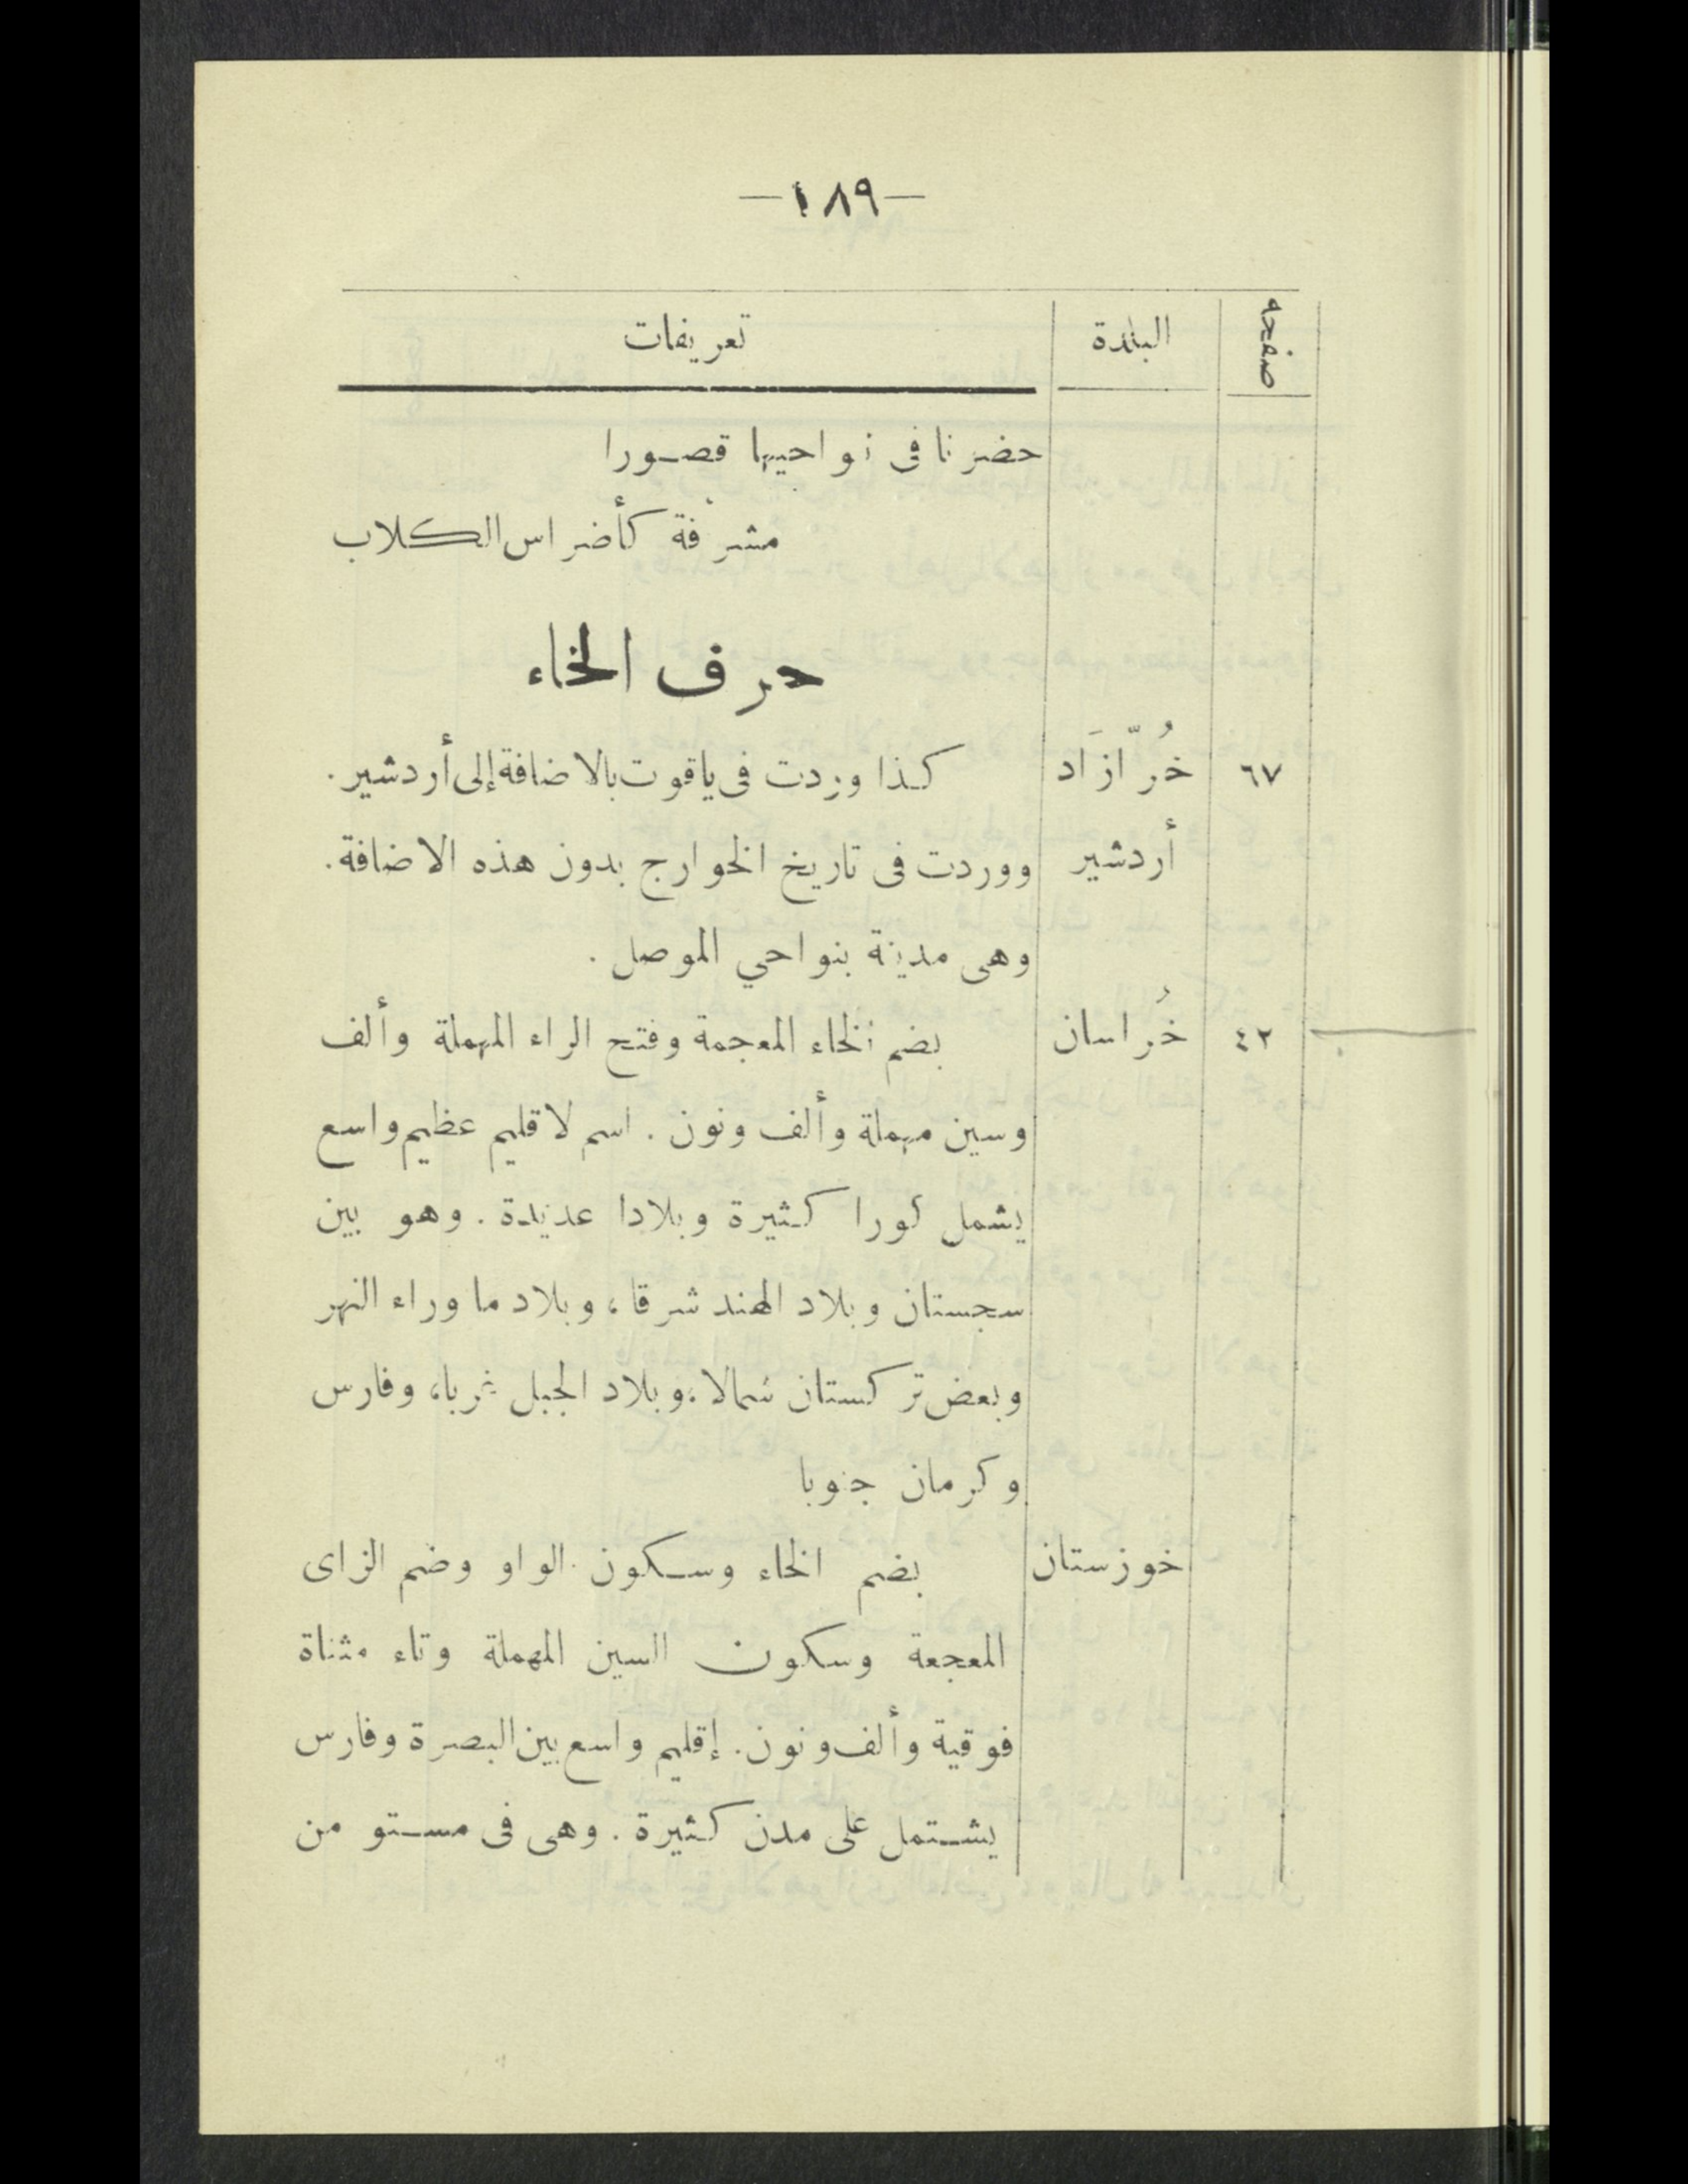 —١٨٩—
صفحه البلدة تعريفات
حضرنا فى نواحيها قصورا
مشرفة كأضراس الكلاب
حرف الخاء
٦٧ خُرّازَاد كذا وردت فى ياقوت بالاضافة إلى أردشير.
أردشير ووردت فى تاريخ الخوارج بدون هذه الاضافة.
وهى مدينة بنواحي الموصل.
٤٢ خُراسان بضم الخاء المعجمة وفتح الراء المهملة وألف
وسين مهملة وألف ونون. اسم لاقليم عظيم واسع
يشمل كورا كثيرة وبلادا عديدة. وهو بين
سجستان وبلاد الهند شرقا، وبلاد ما وراء النهر
وبعض تركستان شمالا، وبلاد الجبل غربا، وفارس
وكرمان جنوبا
خوزستان بضم الخاء وسكون الواو وضم الزاى
المعجعة وسكون السين المهملة وتاء مثناة
فوقية وألف ونون. إقليم واسع بين البصرة وفارس
يشتمل على مدن كثيرة. وهى فى مستو من